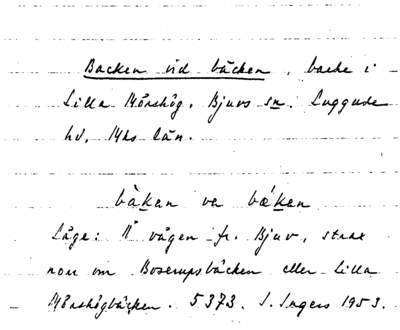 Backen vid bäcken, backe i
Lilla Mörshög, Bjuvs sn. Luggude
hd, Mhs län.
bàkan va bǽkan
Läge: På vägen fr. Bjuv, strax
norr om Boserupsbäcken eller Lilla
Mörshögbäcken. 5373. I. Ingers 1953.